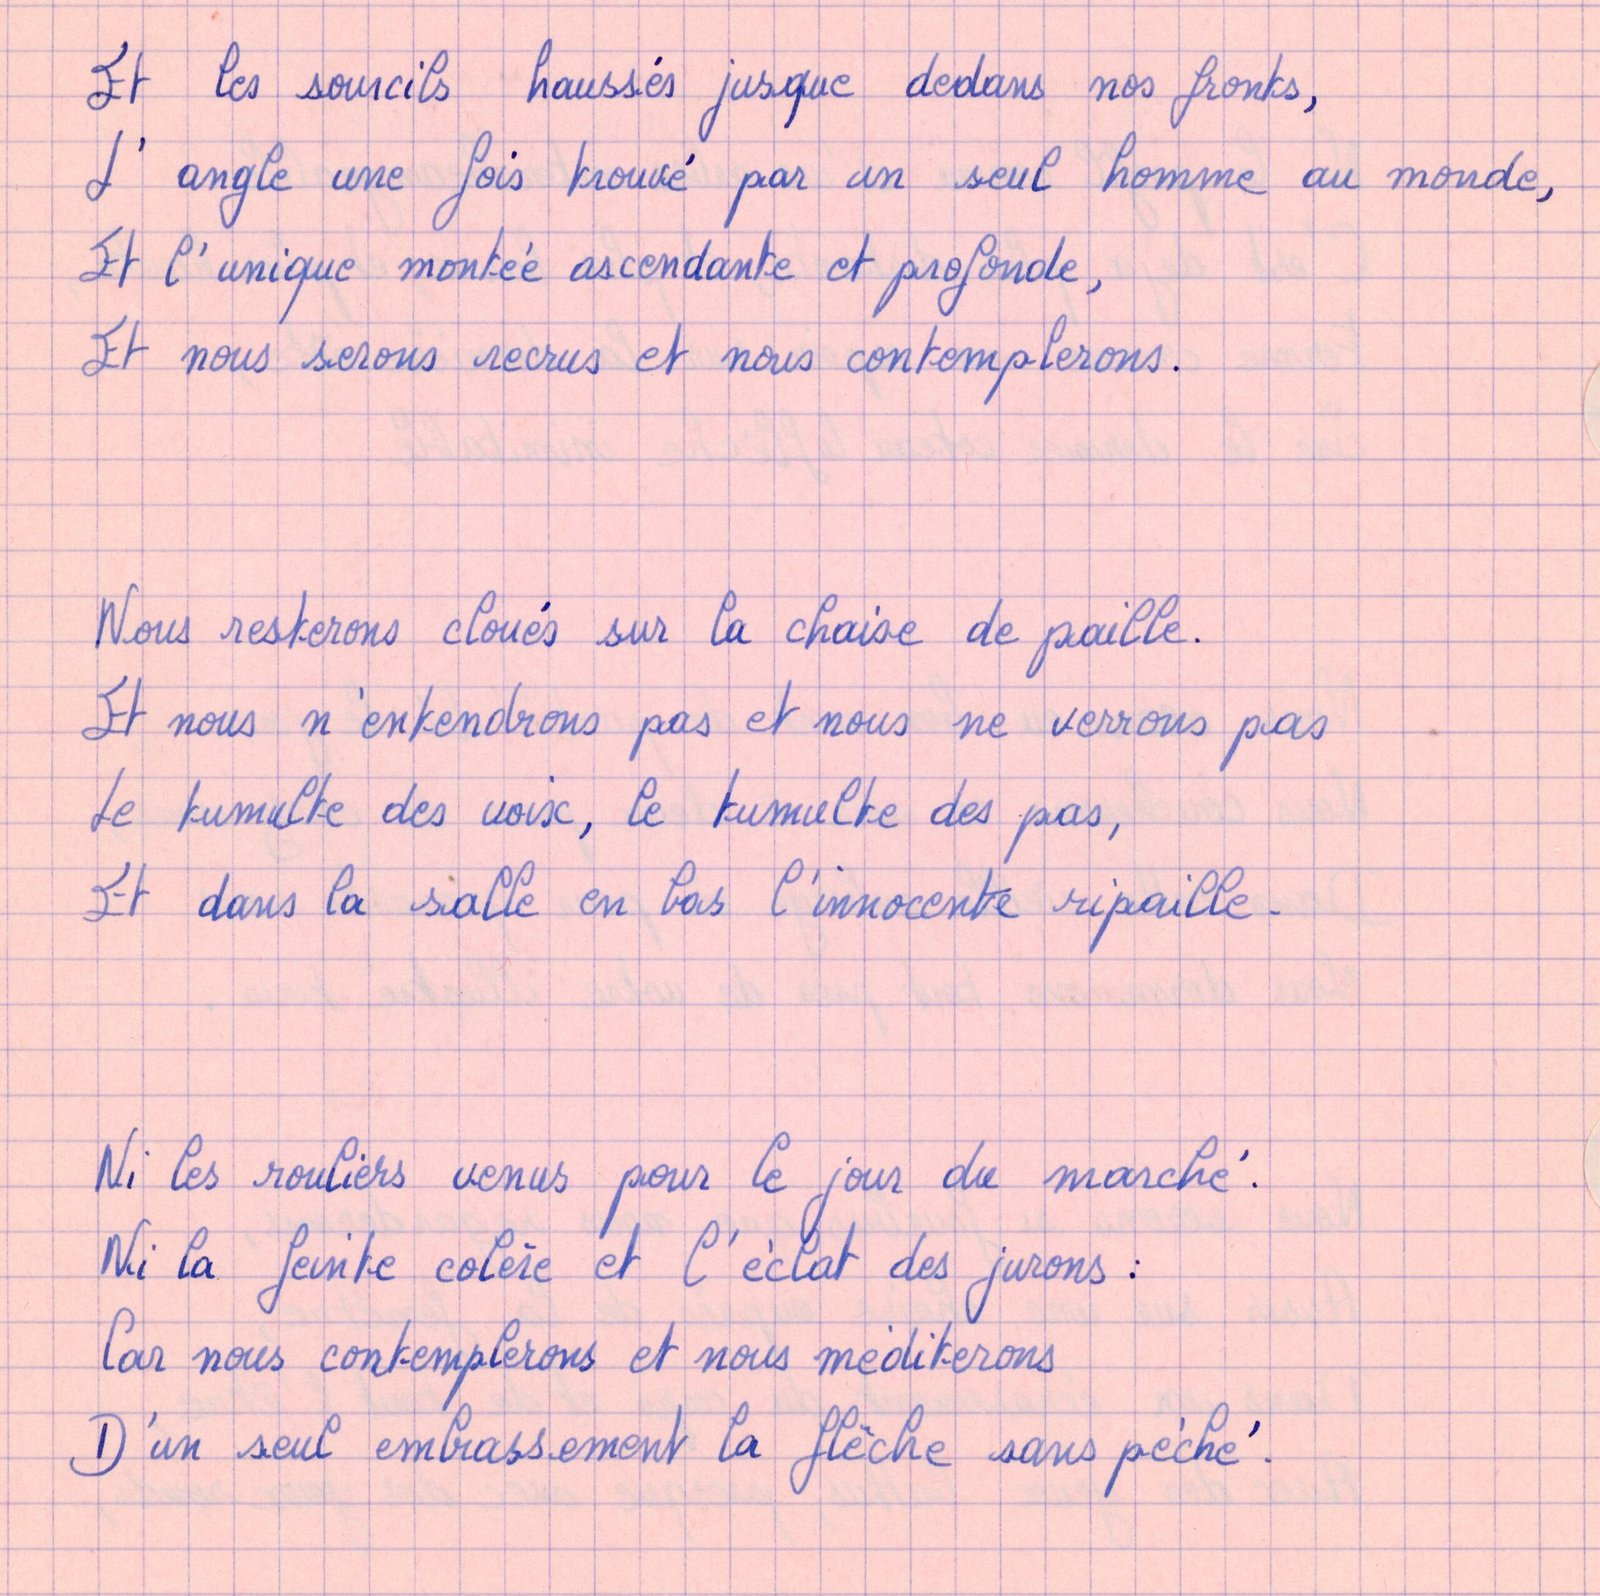 Et les sourcils haussés jusque dedans nos fronts,
L'angle une fois trouvé par un seul homme au monde,
Et l'unique montée ascendante et profonde,
Et nous serons recrus et nous contemplerons.
Nous resterons cloués sur la chaise de paille.
Et nous n'entendrons pas et nous ne verrons pas
Le tumulte des voix, le tumulte des pas,
Et dans la salle en bas l'innocente ripaille.
Ni les rouliers venus pour le jour du marché.
Ni la feinte colère et l'éclat des jurons :
Car nous contemplerons et nous méditerons
D'un seul embrassement la flèche sans péché.